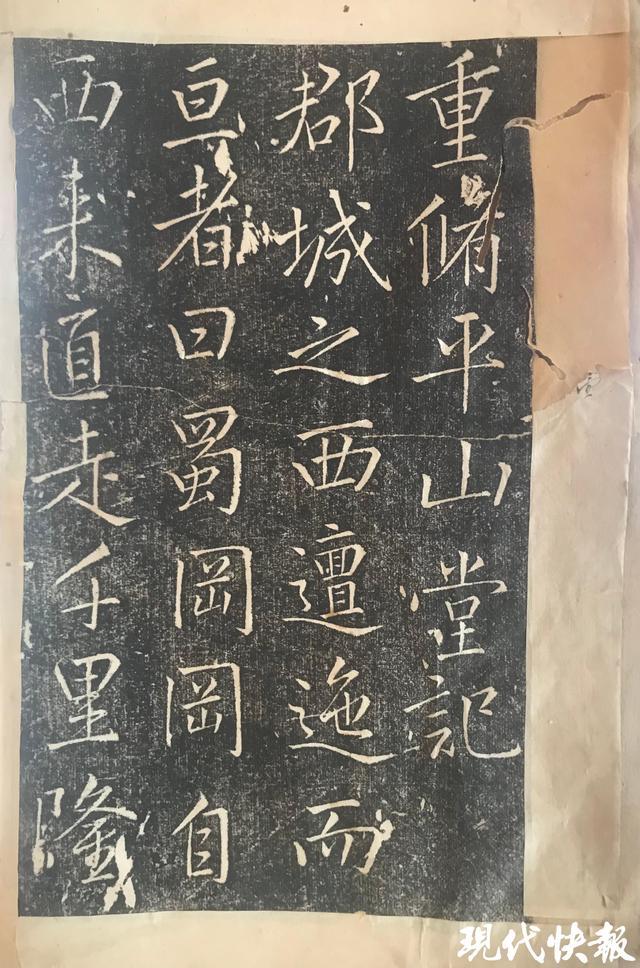 重脩平山堂記
郡城之西邅迤而
亘者曰蜀岡岡自
西來道走千里隆
現代快報